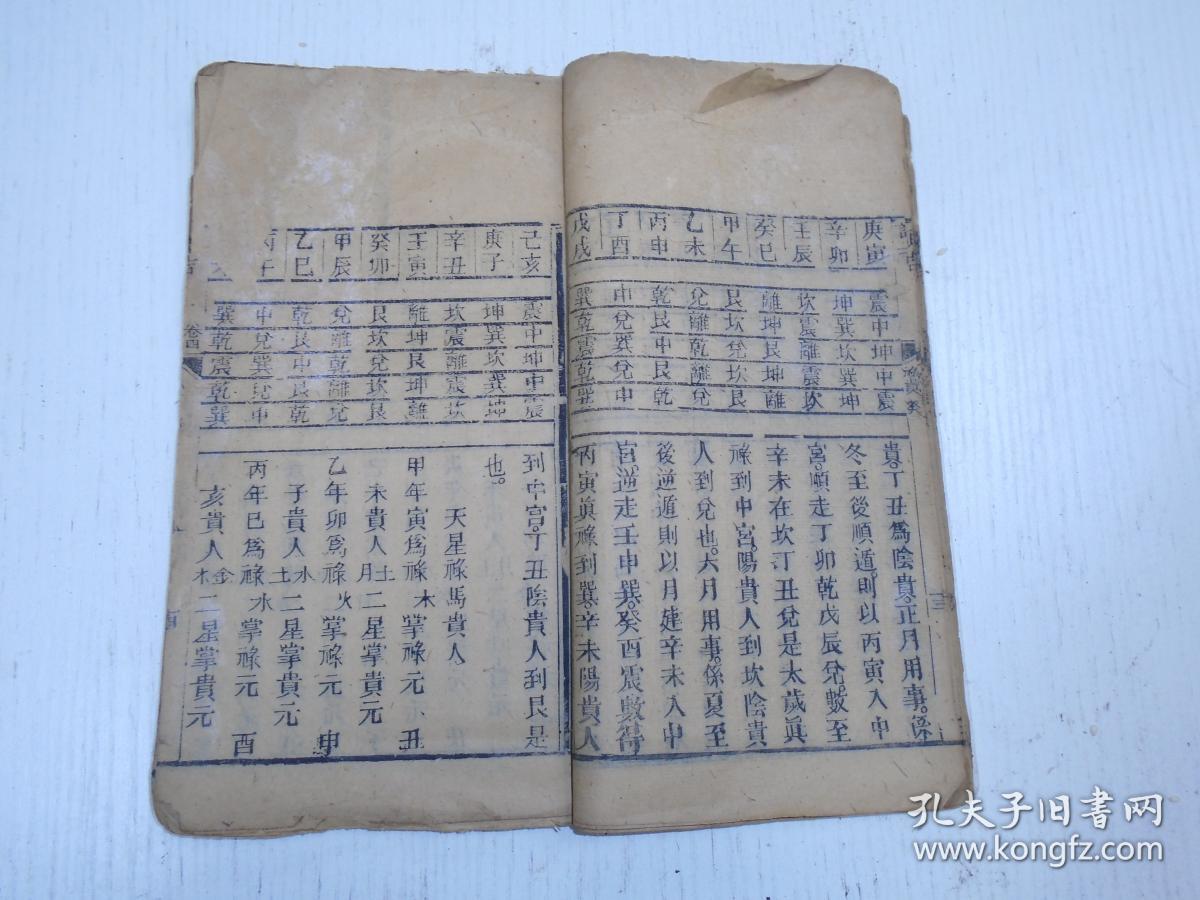 庚寅
辛卯
壬辰
癸巳
甲午
乙未
丙申
丁酉
戊戌
震中坤中震
坤巽坎巽坤
坎震離震坎
離坤艮坤離
艮坎兌坎艮
兌離乾離兌
乾艮中艮乾
中兌巽兌中
巽乾震乾巽
貴丁丑為陰貴正月用事係
冬至後順遁則以丙寅入中
宮順走丁卯乾戊辰兌數至
辛未在坎丁丑兌是太歲眞
祿到中宮陽貴人到坎陰貴
人到兌也六月用事係夏至
後逆遁則以月建辛未入中
宮逆走壬申巽癸酉震數得
丙寅眞祿到巽辛未陽貴人
己亥
庚子
辛丑
壬寅
癸卯
甲辰
乙巳
丙午
震中坤中震
坤巽坎巽坤
坎震離震坎
離坤艮坤離
艮坎兌坎艮
兌離乾離兌
乾艮中艮乾
中兌巽兌中
巽乾震乾巽
到中宮丁丑陰貴人到艮是
也
天星祿馬貴人
甲年寅為祿木掌祿元丑
未貴人土月二星掌貴元
乙年卯為祿火掌祿元申
子貴人水土二星掌貴元
丙年巳為祿水掌祿元酉
亥貴人金木二星掌貴元
卷四
孔夫子旧书网
www.kongfz.com